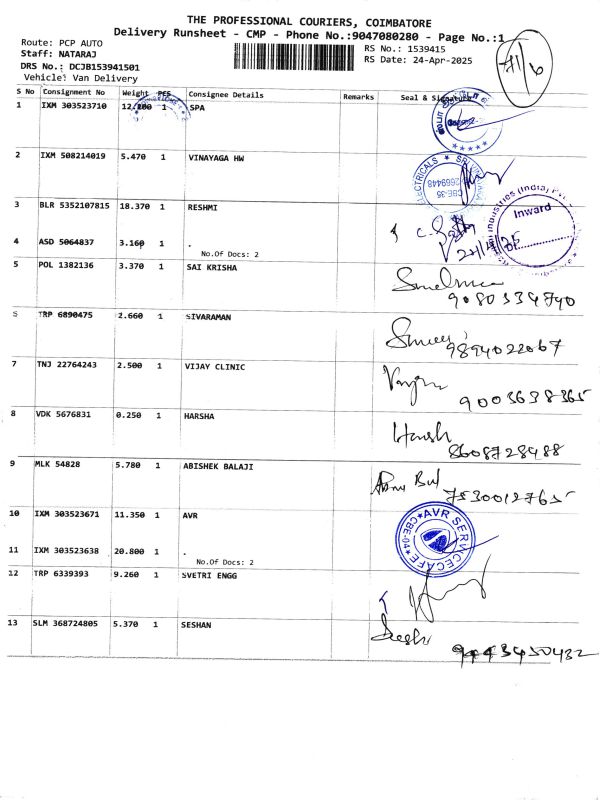 THE PROFESSIONAL COURIERS, COIMBATORE
Delivery Runsheet - CMP - Phone No.:9047080280 - Page No.:1
Route: PCP AUTO
RS No.: 1539415
Staff: NATARAJ
RS Date: 24-Apr-2025
DRS No.: DCJB153941501
Vehicle: Van Delivery
S No Consignment No Weight PCS Consignee Details Remarks Seal & Signature
1 IXM 303523710 12.200 1 SPA
2 IXM 508214019 5.470 1 VINAYAGA HW
ELECTRICALS ★ SRI
CBE-35
2689448
3 BLR 5352107815 18.370 1 RESHMI
Industries (India)
Inward
4 ASD 5064837 3.160 1 .
No.Of Docs: 2
5 POL 1382136 3.370 1 SAI KRISHA
9080334740
6 TRP 6890475 2.660 1 SIVARAMAN
9894022067
7 TNJ 22764243 2.500 1 VIJAY CLINIC
9003638365
8 VDK 5676831 0.250 1 HARSHA
Harsh
8608728488
9 MLK 54828 5.780 1 ABISHEK BALAJI
7530012765
10 IXM 303523671 11.350 1 AVR
★ AVR SERVICECAFE ★ CBE-04
11 IXM 303523638 20.800 1 .
No.Of Docs: 2
12 TRP 6339393 9.260 1 SVETRI ENGG
13 SLM 368724805 5.370 1 SESHAN
Sesh
9443450432